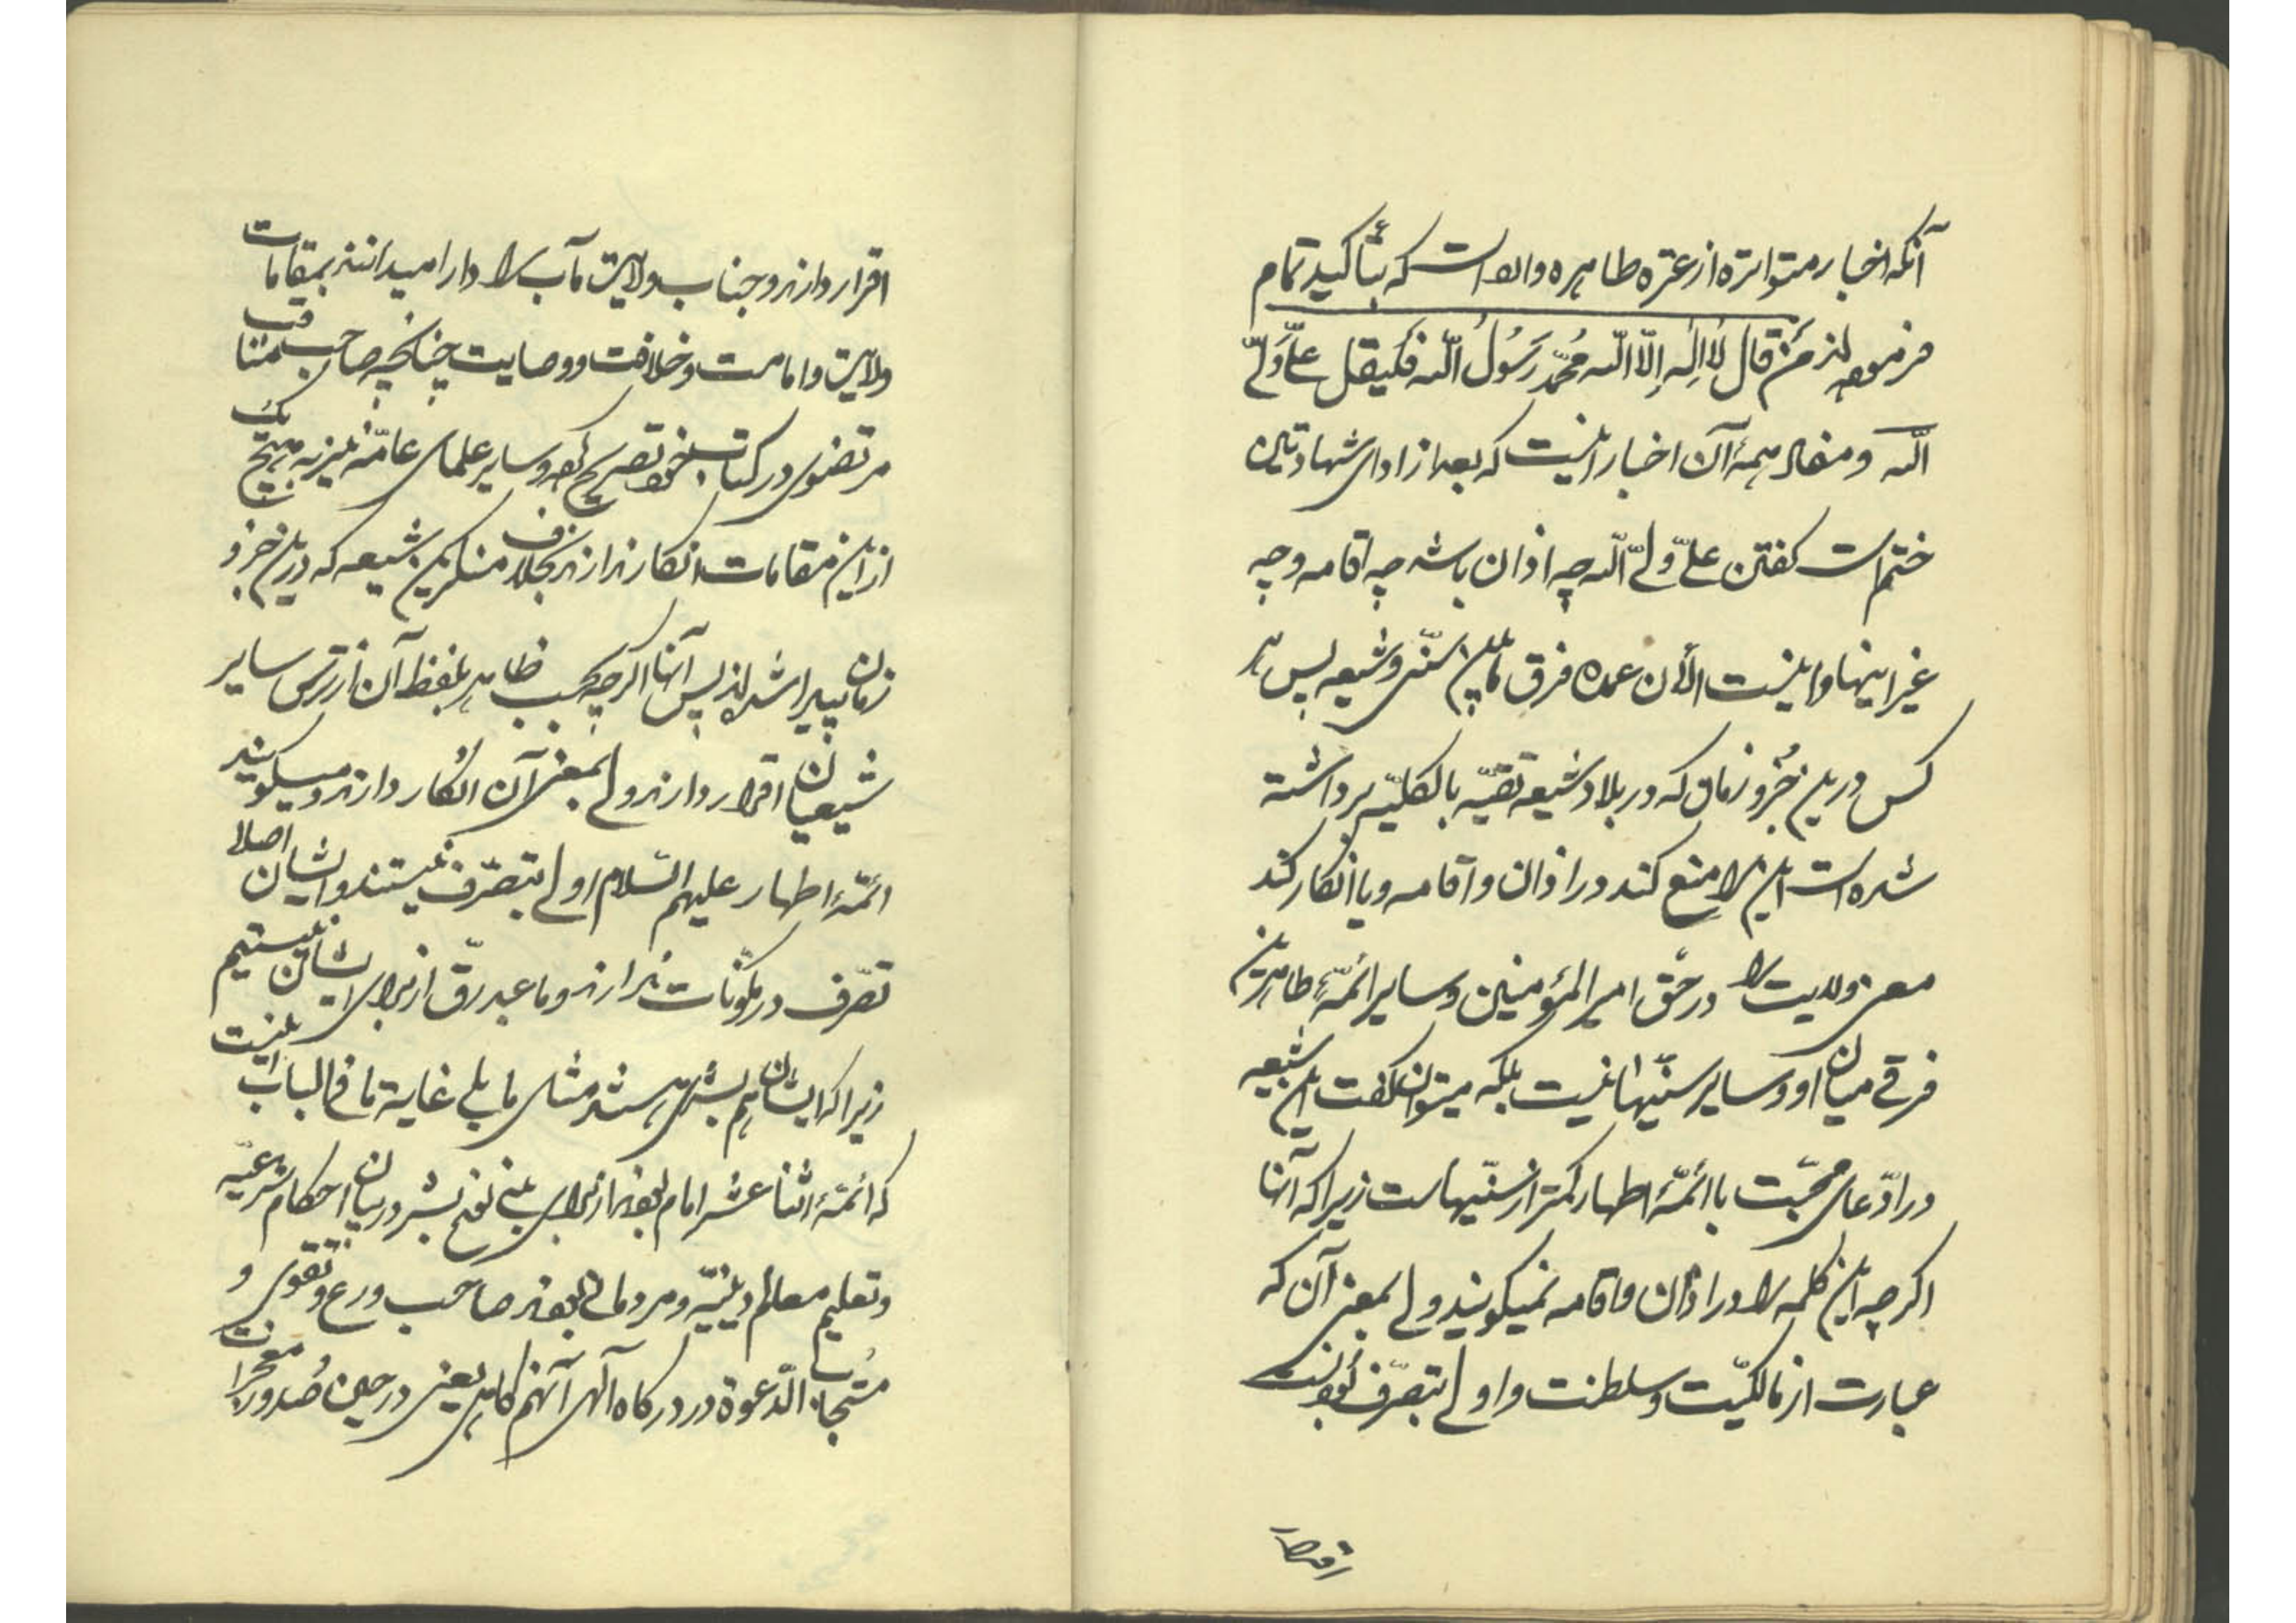 آنکه اخبار متواتره از عتره طاهره وارد است که بتأکید تمام
فرموده‌اند مَن قال لا اله إلّا اللّه محمّد رَسُولُ اللّه فلیقل علیّ ولیّ
اللّه و مفاد همهٔ آن اخبار اینست که بعد از ادای شهادتین
ختم است گفتن علیّ ولیّ اللّه چه اذان باشد چه اقامه و چه
غیر اینها و اینست الأن عمده فرق مابین سنّی و شیعه پس هر
کس در این جزو زمان که در بلاد شیعه تقیّه بالکلیّه برداشته
شده است این را منع کند در اذان و اقامه و یا انکار کند
معنی ولایت را در حق امیر المؤمنین و سایر ائمّهٔ طاهرین
فرقی میان او و سایر سنّیها نیست بلکه میتوان گفت این شیعه
در ادّعای محبّت با ائمّهٔ اطهار کمتر از سنّیهاست زیرا که آنها
اکرچه این کلمه را در اذان و اقامه نمیکویند ولی بمعنی آن که
عبارت از مالکیّت و سلطنت و اولی بتصرّف بودنست
اقرار دارند و جناب ولایت مآب را دارا میدانند بمقامات
ولایت و امامت و خلافت و وصایت چنانچه صاحب مناقب
مرتضوی در کتاب خود تصریح کرده و سایر علمای عامّه نیز به هیچ یک
از این مقامات انکار ندارند بخلاف منکرین شیعه که در این جزو
زمان پیدا شده‌اند پس آنها اکرچه بحسب ظاهر بلفظ آن از ترس سایر
شیعیان اقرار دارند ولی بمعنی آن انکار دارند و میکویند
ائمّهٔ اطهار علیهم السّلام اولی بتصرّف نیستند و ایشان اصلا
تصّرف در مکوّنات ندارند و ما عبد رقّ از برای ایشان نیستیم
زیرا که ایشان هم بشری هستند مثل ما بلی غایة ما فی الباب اینست
که ائمّهٔ اثنا عشر امام بودند از برای بنی نوع بشر در بیان احکام شرعیّه
و تعلیم معالم دینیّه و مردمانی بودند صاحب ورع و تقوی و
مستجاب الدّعوة در درکاه آلهی آنهم کاهی یعنی در حین صُدور معجزات